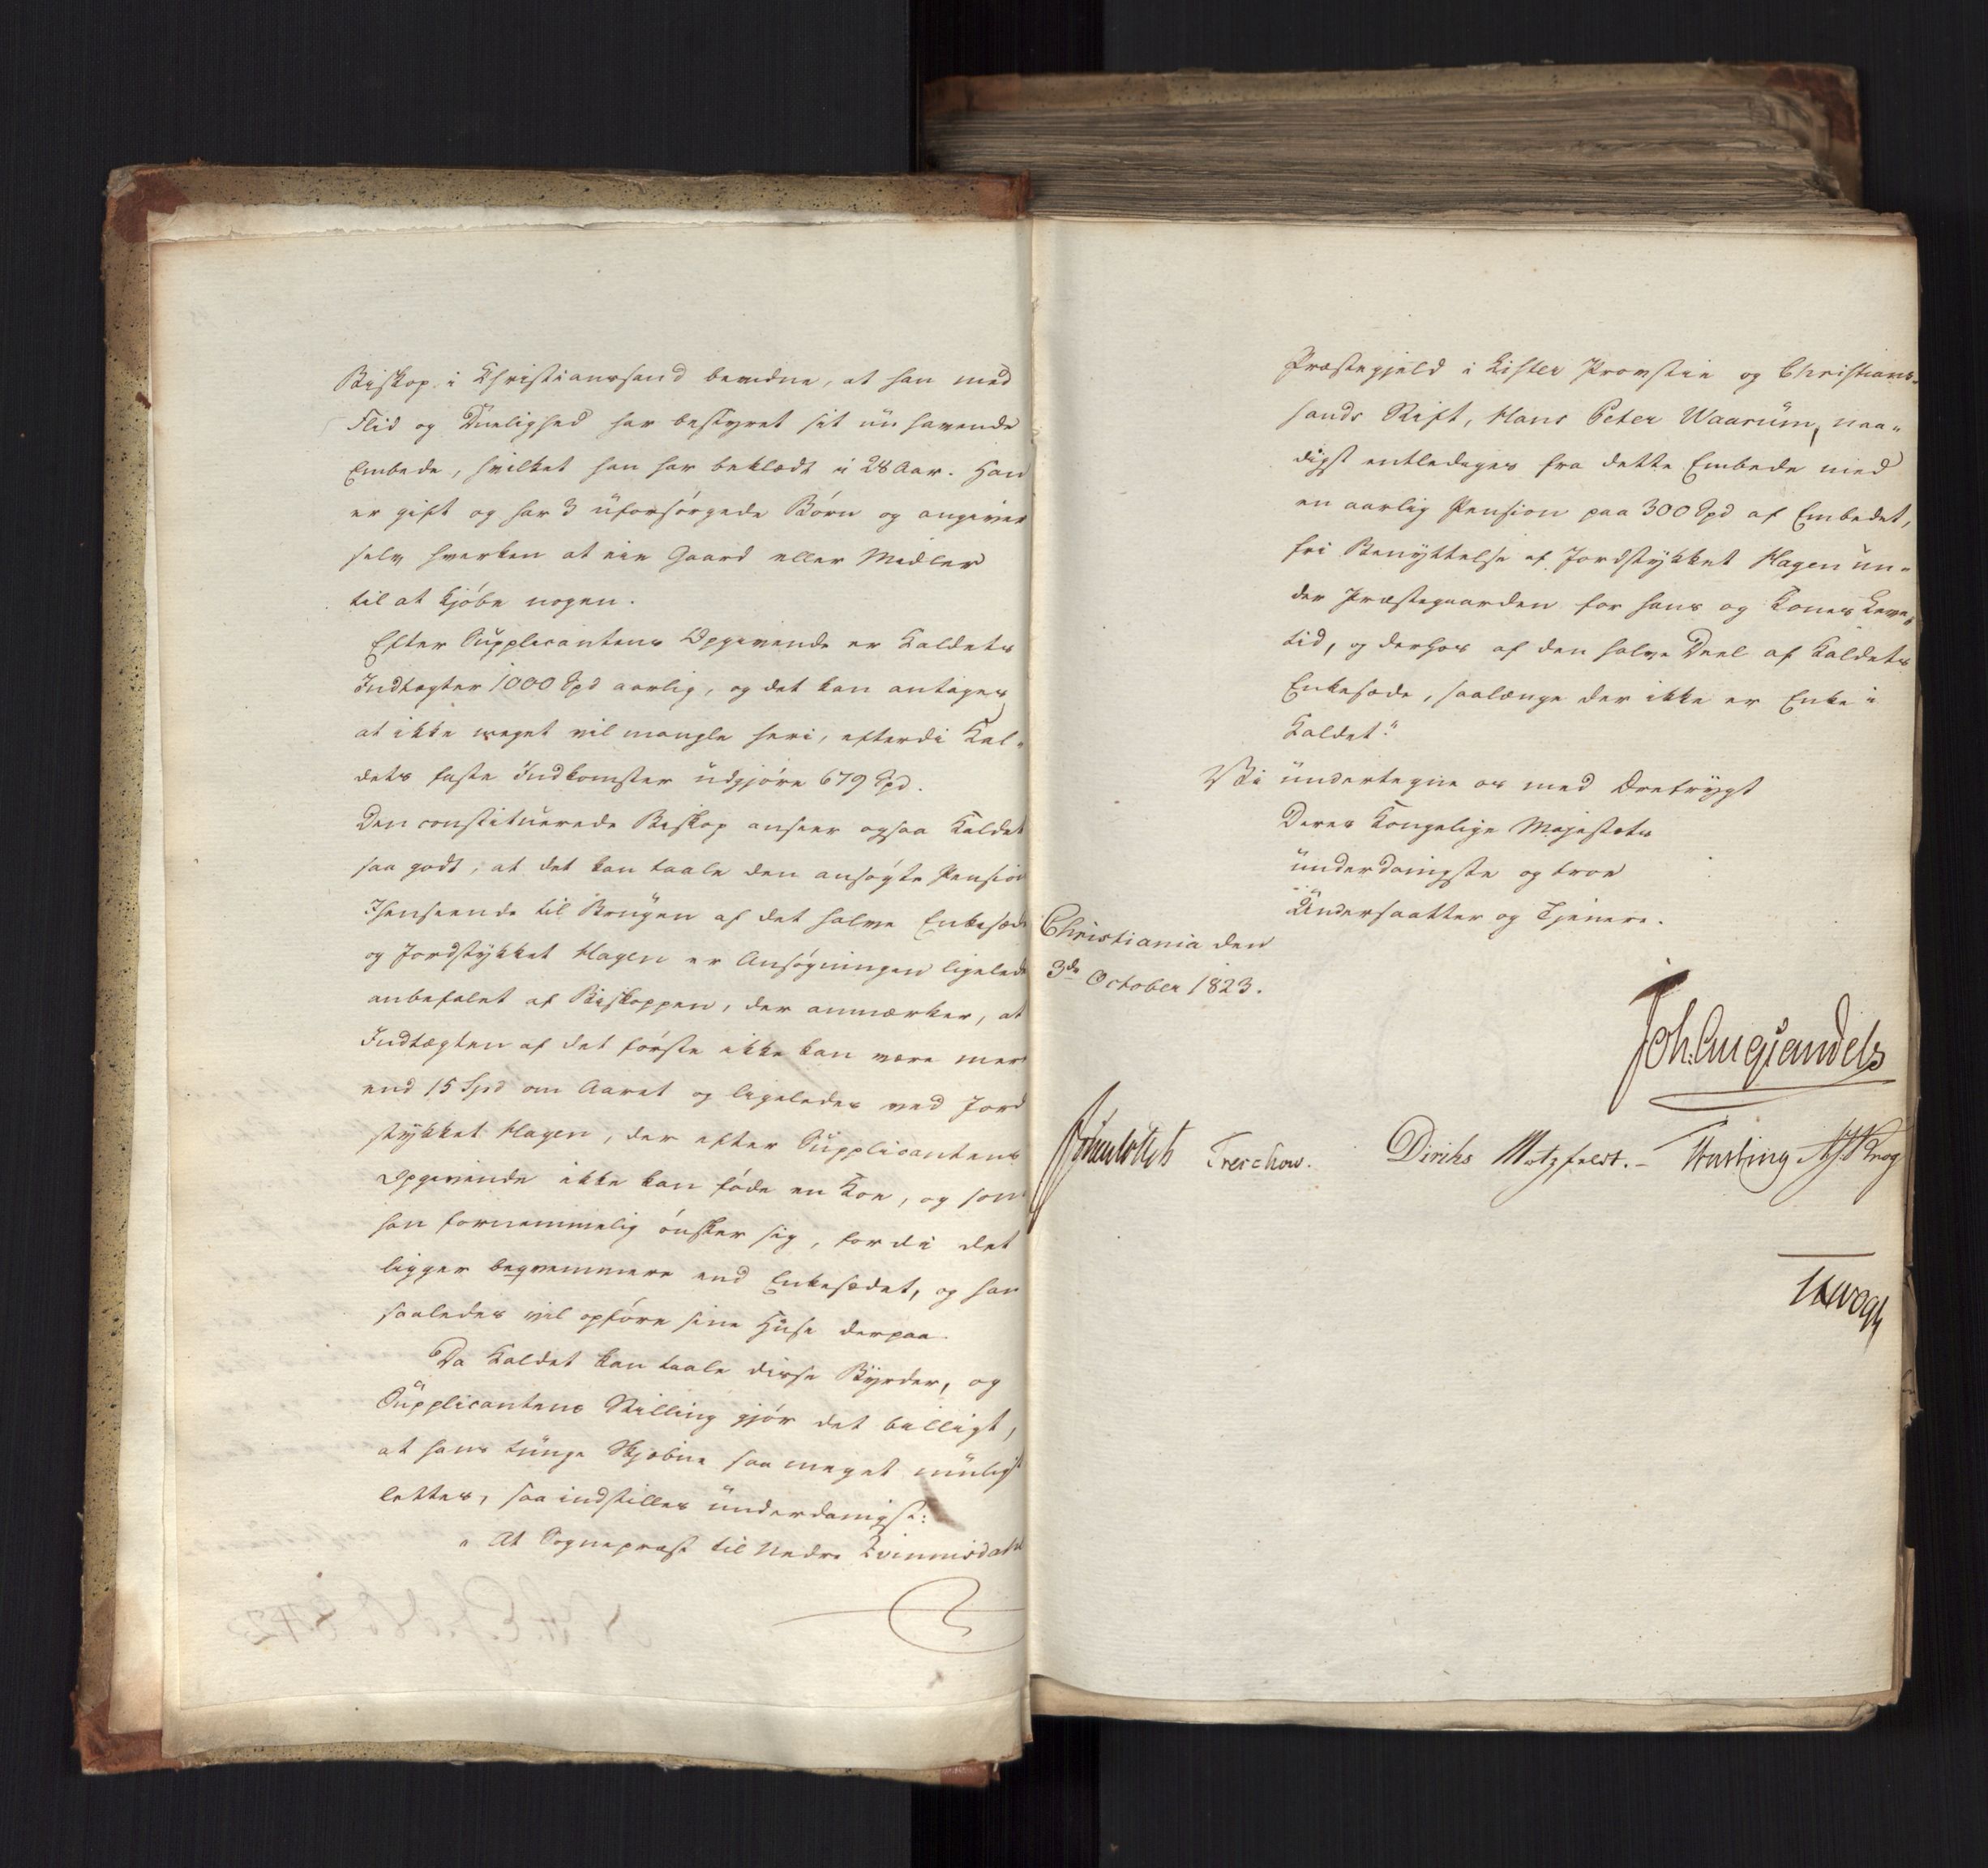 Biskop i Christianssand bevidne, at han med
Flid og Duelighed har bestyret sit nu havende
Embede, hvilket han har beklædt i 28 Aar. Han
er gift og har 3 uforsörgede Börn og angiver
selv hverken at eie Gaard eller Midler
til at kjöbe nogen.
Efter Supplicantens Opgivende er Kaldets
Indtægter 1000 Spd aarlig, og det kan antages
at ikke meget vil mangle heri, efterdi Kal-
dets faste Indkomster udgjöre 679 Spd.
Den constituerede Biskop anseer ogsaa Kaldet
saa godt, at det kan taale den ansögte Pension
I Henseende til Brugen af det halve Enkesæde
og Jordstykket Hagen er Ansögningen ligeledes
anbefalet af Biskoppen, der anmærker, at
Indtægten af det förste ikke kan være mere
end 15 Spd om Aaret og ligeledes ved Jord
stykket Hagen, der efter Supplicantens
Opgivende ikke kan föde en Koe, og som
han fornemmelig önsker sig, fordi det
ligger beqvemmere end Enkesædet, og han
saaledes vil opföre sine Huse derpaa.
Da Kaldet kan taale disse Byrder, og
Supplicantens Stilling gjör det billigt,
at hans tunge Skjebne saa meget muligt
lettes, saa indstilles underdanigst:
" At Sognepræst til Nedre Qvinnisdahl
Præstegjeld i Lister Provstie og Christians-
sands Stift, Hans Peter Waarum, naa-
digst entlediges fra dette Embede med
en aarlig Pension paa 300 Spd af Embedet,
fri Benyttelse af Jordstykket Hagen un-
der Præstegaarden for hans og Kones Leve-
tid, og derhos af den halve Deel af Kaldets
Enkesæde, saalænge der ikke er Enke i
Kaldet."
Vi undertegne os med Ærefrygt
Deres Kongelige Majestets
underdanigste og troe
Undersaatter og Tjenere.
Christiania den
3de October 1823.
Joh. Aug Sandels
Sommerhielm Treschow. Diriks Motzfeldt. - Fasting Krog
Vogt